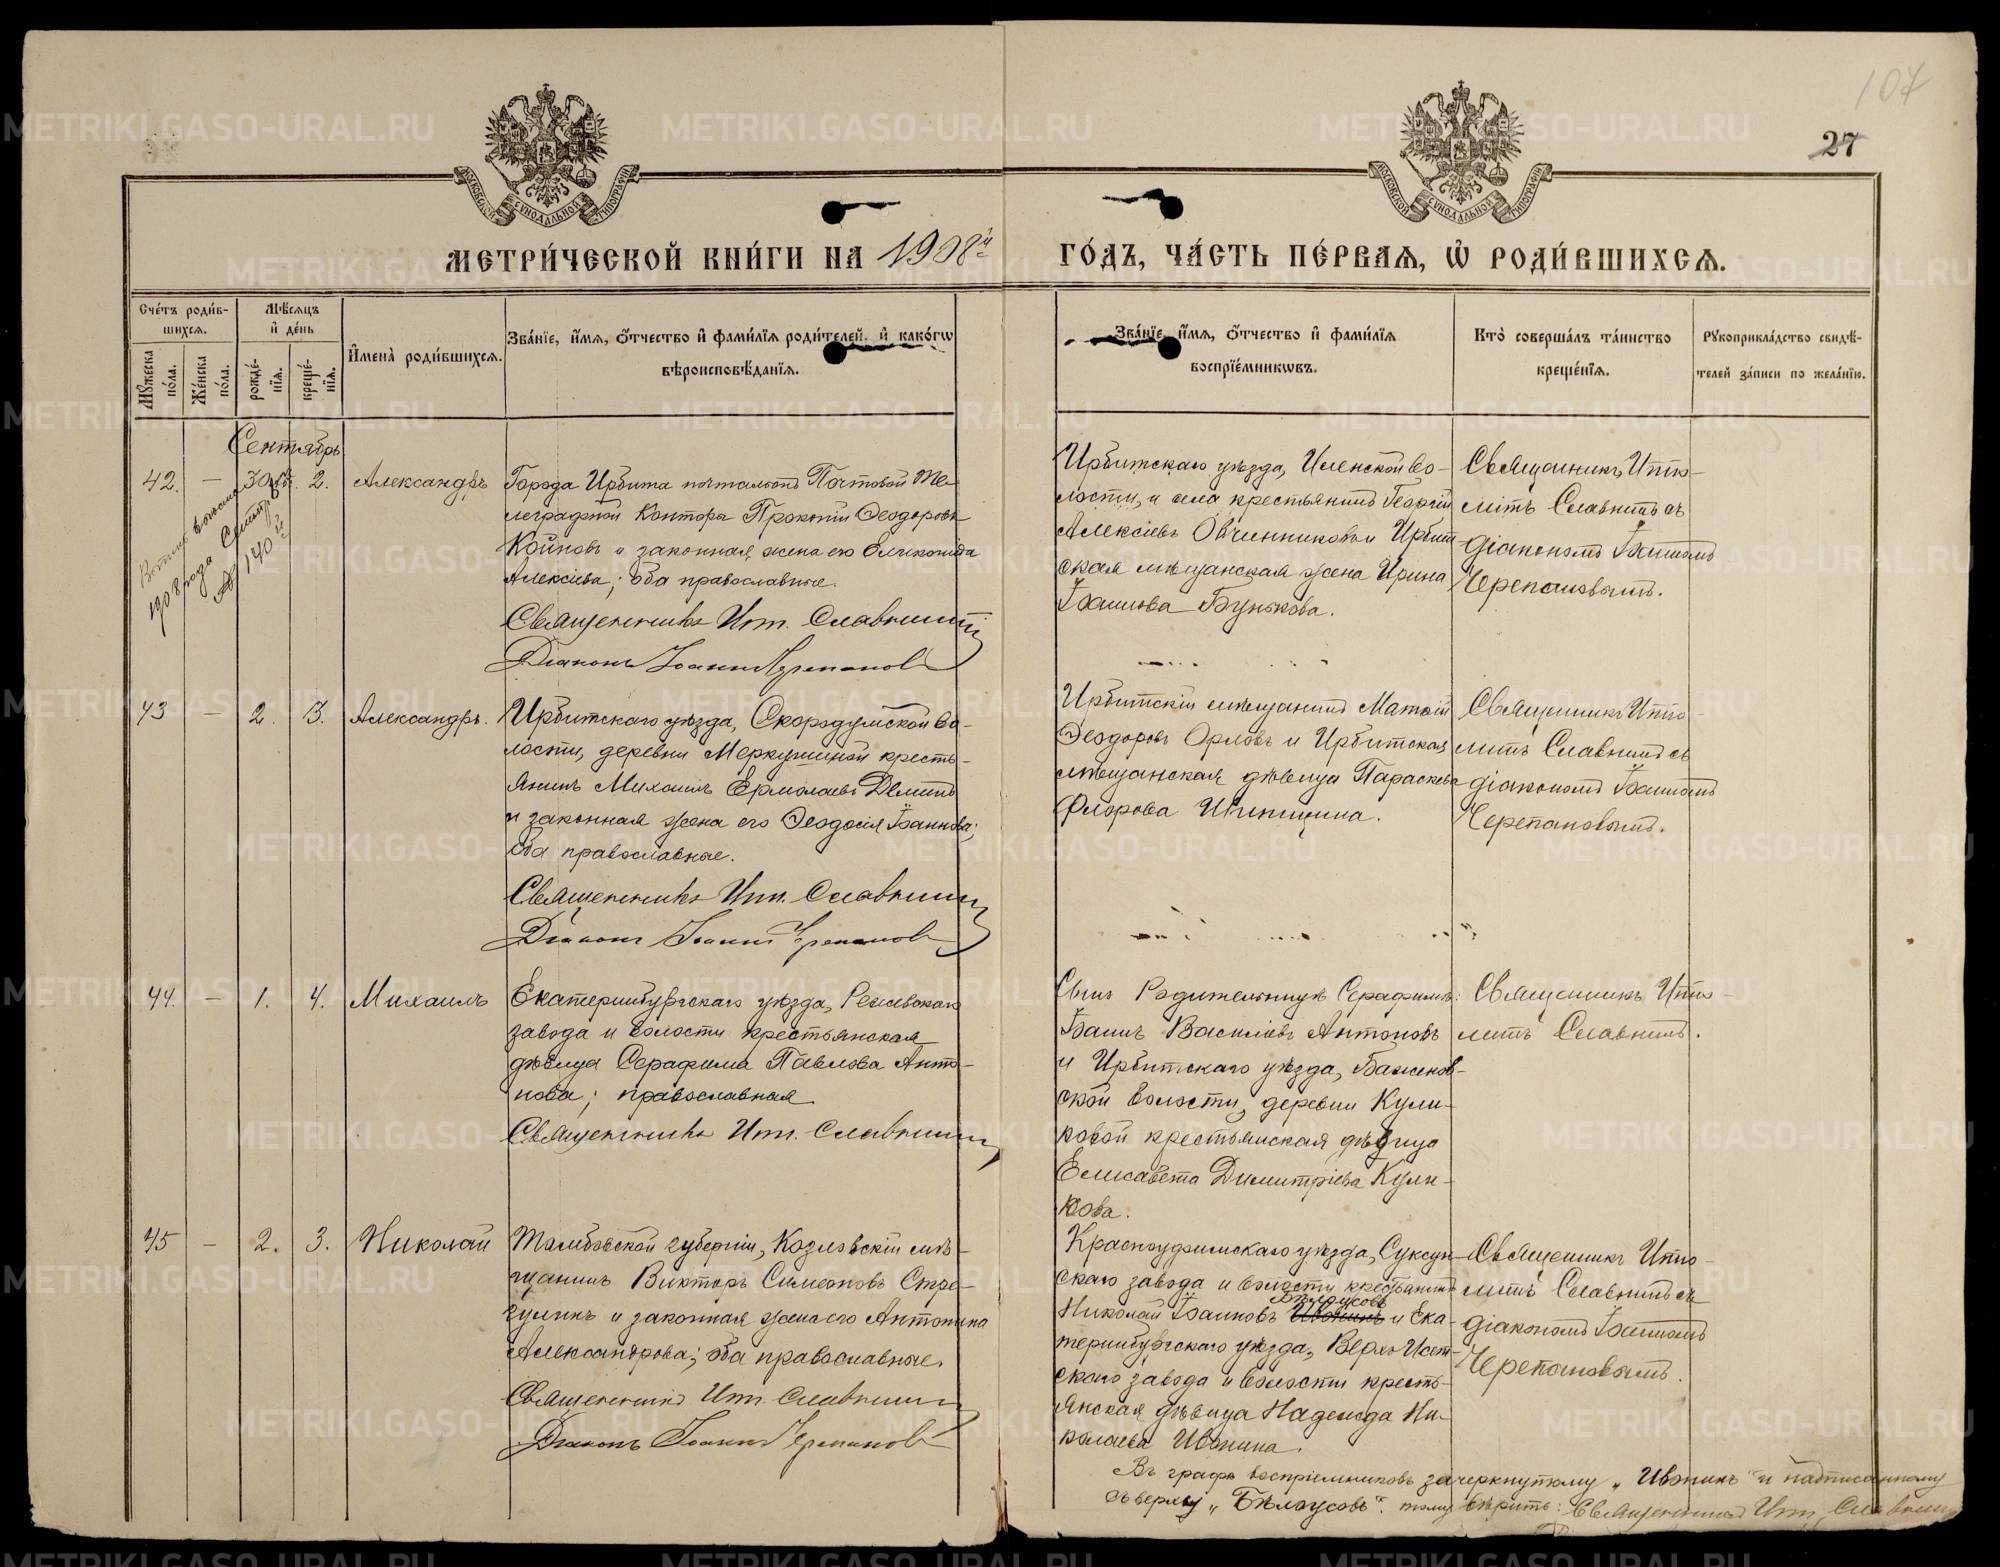 107
27
МОСКОВСКОЙ СѴНОДАЛЬНОЙ ТИПОГРАФІИ
МОСКОВСКОЙ СѴНОДАЛЬНОЙ ТИПОГРАФІИ
МЕТРИ́ЧЕСКОЙ КНИ́ГИ НА 1908й ГО́ДЪ, ЧА́СТЬ ПЕ́РВАѦ, Ѡ҆ РОДИ́ВШИХСѦ.
Сче́тъ роди́в-
шихсѧ.
Мѣ́сѧцъ
и҆ де́нь
Мꙋ́жеска по́ла.
Же́нска по́ла.
рожде́-
нїѧ.
креще́-
нїѧ.
И҆мена̀ роди́вшихсѧ.
Зва́нїе, и҆́мѧ, ѻ҆́тчество и҆ фами́лїѧ роди́телей, и҆ како́гѡ
вѣроисповѣ́данїѧ.
Зва́нїе, и҆́мѧ, ѻ҆́тчество и҆ фами́лїѧ
воспрїе́мникѡвъ.
Кто̀ соверша́лъ та́инство
креще́нїѧ.
Рꙋкоприкла́дство свидѣ́-
телей за́писи по жела́нїю.
Сентябрь
42. — 30 2. Александръ
1908 года
№ 140
Города Ирбита почталіонъ Почтовой Те-
леграфной Конторы Прокопій Ѳеодоровъ
Койновъ и законная жена его Еликонида
Алексіева; оба православные.
Священникъ Ип. Славнинъ
Діаконъ Іоаннъ Черепановъ
Ирбитскаго уѣзда, Иленской во-
лости, и села крестьянинъ Георгій
Алексіевъ Овчинниковъ и Ирбит-
ская мѣщанская жена Ирина
Іоаннова Бунькова.
Священникъ Иппо-
литъ Славнинъ съ
діакономъ Іоанномъ
Черепановымъ.
43 — 2. 3. Александръ.
Ирбитскаго уѣзда, Скородумской во-
лости, деревни Меркушиной кресть-
янинъ Михаилъ Ермолаевъ Деминъ
и законная жена его Ѳеодосія Іоаннова;
оба православные.
Священникъ Ип. Славнинъ
Діаконъ Іоаннъ Черепановъ
Ирбитскій мѣщанинъ Матвій
Ѳеодоровъ Орловъ и Ирбитская
мѣщанская дѣвица Параскева
Флорова Шипицина.
Священникъ Иппо-
литъ Славнинъ съ
діакономъ Іоанномъ
Черепановымъ.
44. — 1. 4. Михаилъ
Екатеринбургскаго уѣзда, Режевскаго
завода и волости крестьянская
дѣвица Серафима Павлова Анто-
нова; православная
Священникъ Ип. Славнинъ
Родительницы Серафимы:
Іоаннъ Василіевъ Антоновъ
и Ирбитскаго уѣзда, Баженов-
ской волости, деревни Кули-
ковой крестьянская дѣвица
Елисавета Димитріева Кули-
кова.
Священникъ Иппо-
литъ Славнинъ.
45 — 2. 3. Николай
Тамбовской губерніи, Козловскій мѣ-
щанинъ Викторъ Симеоновъ Стре-
гулинъ и законная жена его Антонина
Александрова; оба православные.
Священникъ Ип. Славнинъ
Діаконъ Іоаннъ Черепановъ
Красноуфимскаго уѣзда, Суксун-
скаго завода и волости крестьянинъ
Бѣлоусовъ
Николай Іоанновъ Ивонинъ и Ека-
теринбургскаго уѣзда, Верхъ-Исет-
скаго завода и волости кресть-
янская дѣвица Надежда Ни-
колаева Ивонина.
Священникъ Иппо-
литъ Славнинъ съ
діакономъ Іоанномъ
Черепановымъ.
Въ графѣ воспріемниковъ зачеркнутому „Ивонинъ" и надписанному
сверху „Бѣлоусовъ" тому вѣрить: Священникъ Ип. Славнинъ
METRIKI.GASO-URAL.RU